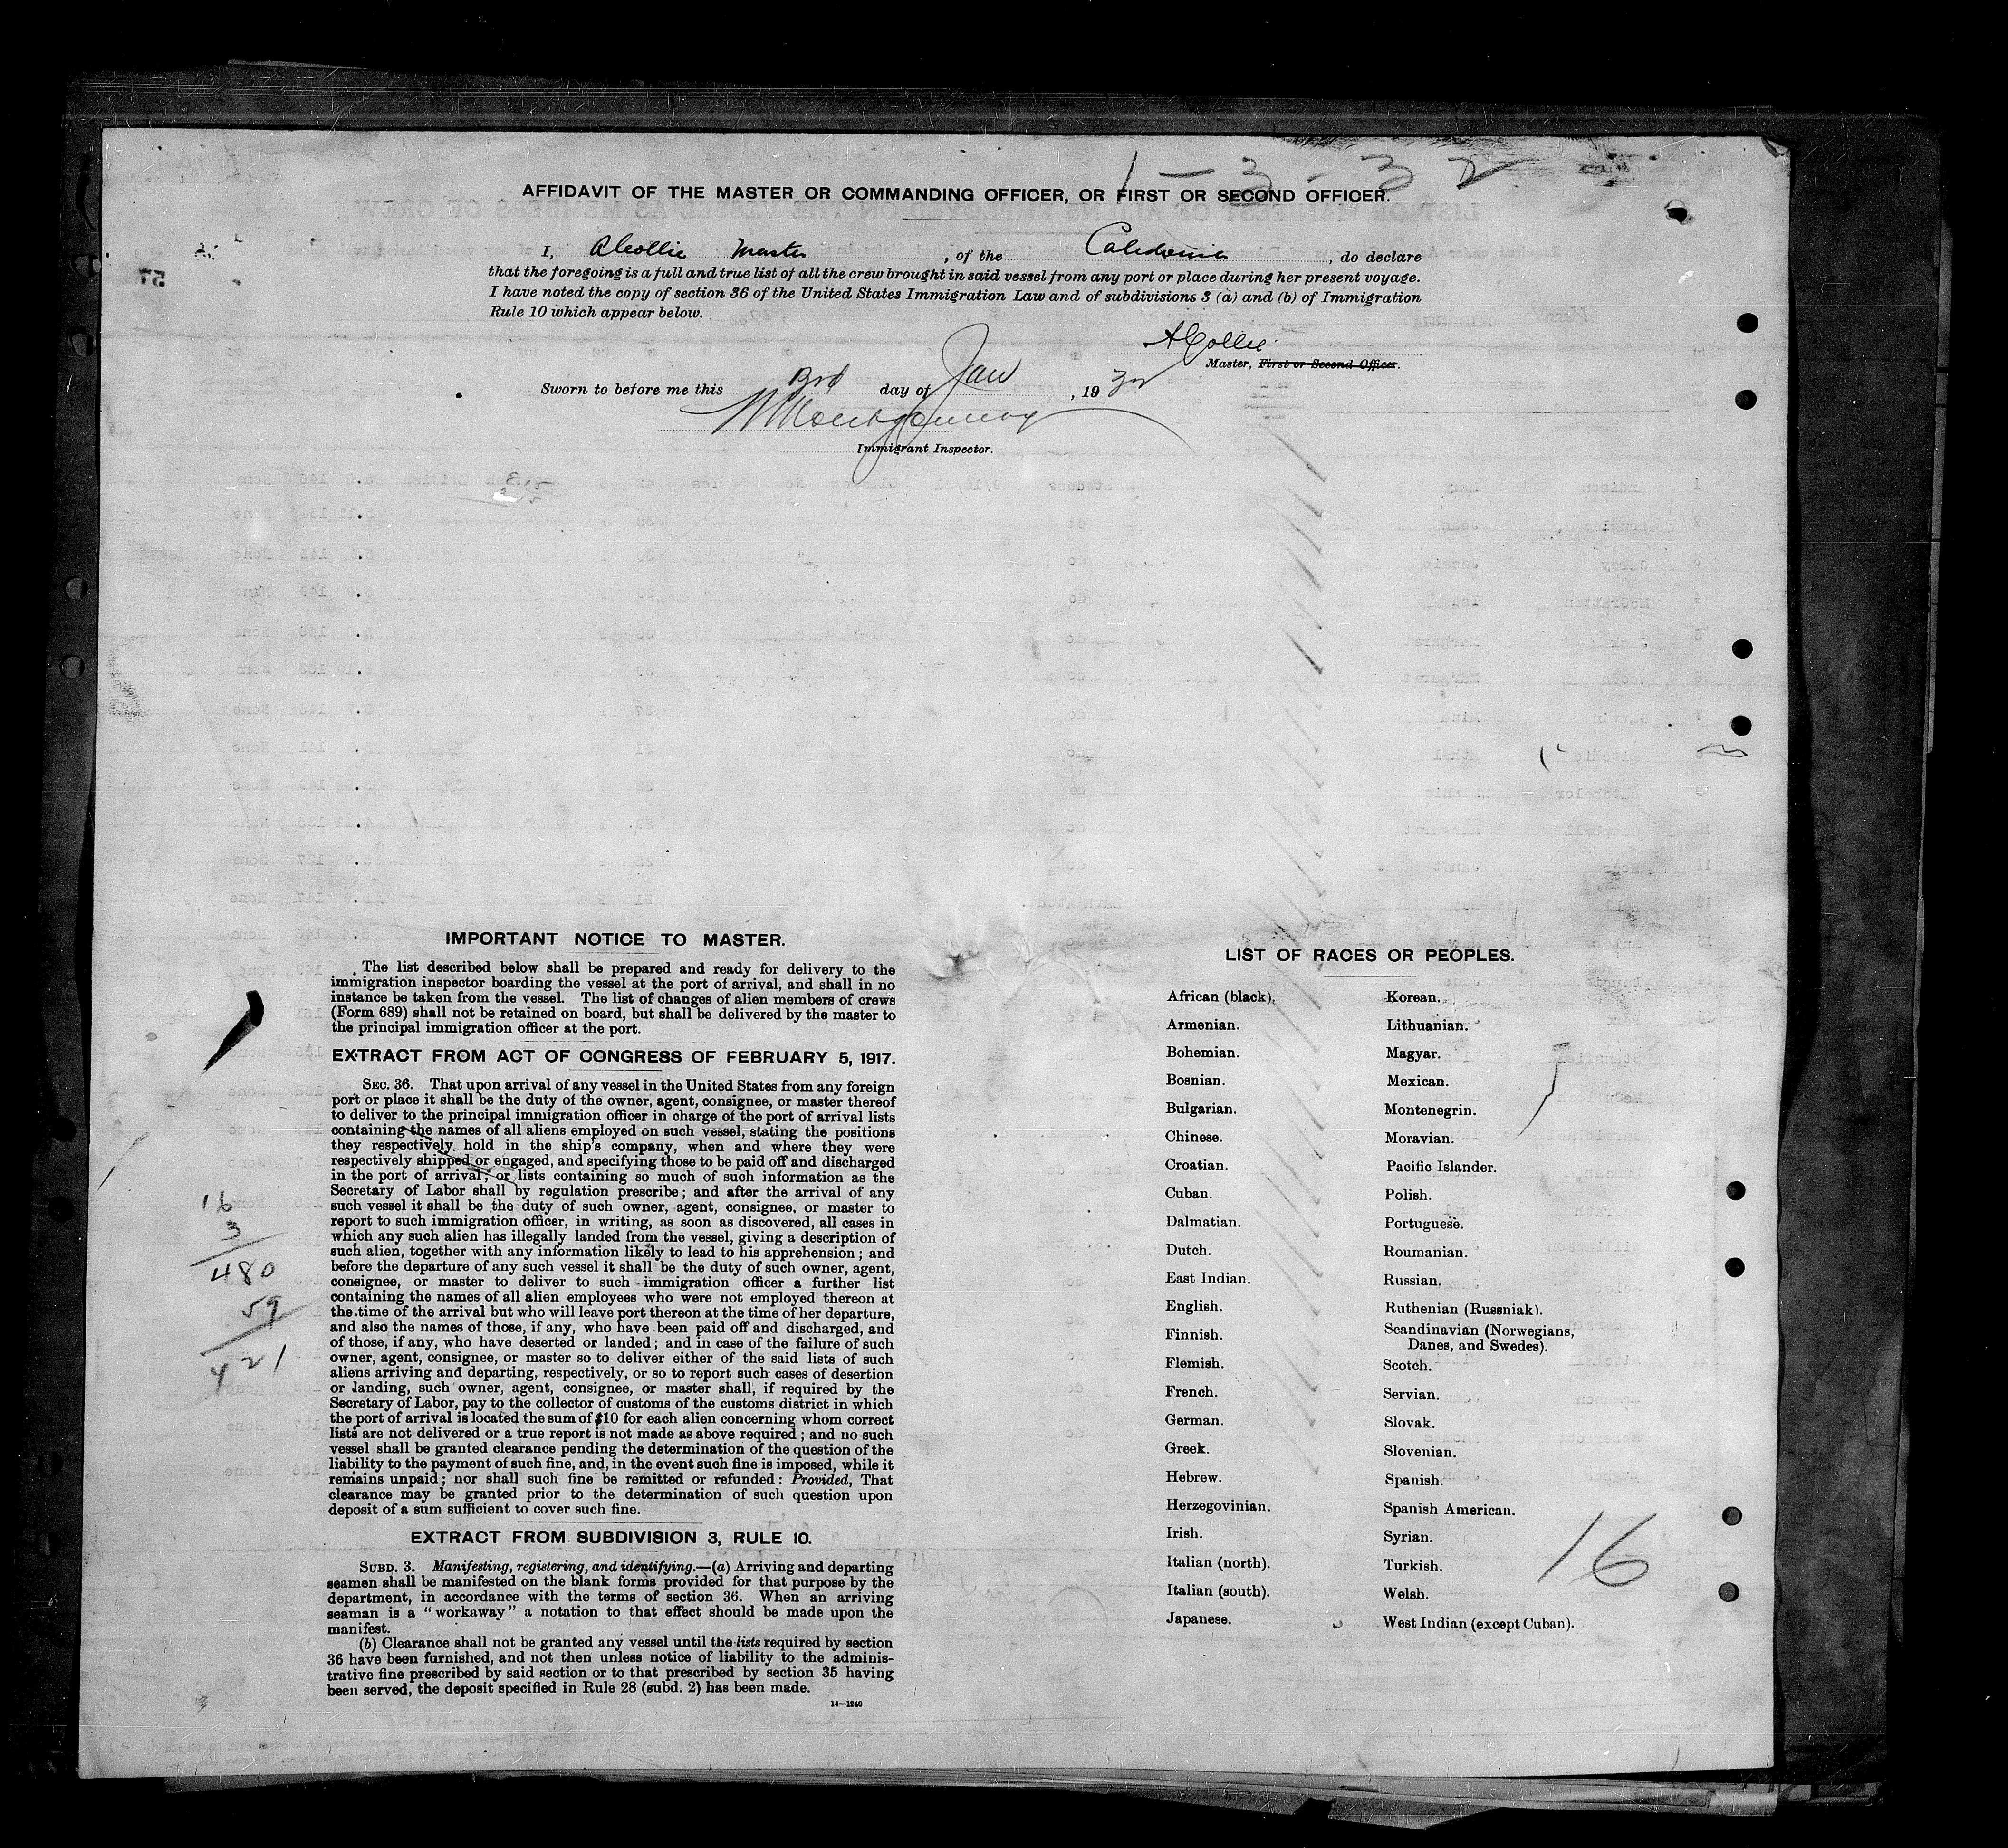 1-3-32
AFFIDAVIT OF THE MASTER OR COMMANDING OFFICER, OR FIRST OR SECOND OFFICER.
I, A Collie Master, of the Caledonia, do declare
that the foregoing is a full and true list of all the crew brought in said vessel from any port or place during her present voyage.
I have noted the copy of section 36 of the United States Immigration Law and of subdivisions 3 (a) and (b) of Immigration
Rule 10 which appear below.
A Collie
Master, First or Second Officer.
Sworn to before me this 3rd day of Jan, 1932
Montgomery
Immigrant Inspector.
IMPORTANT NOTICE TO MASTER.
The list described below shall be prepared and ready for delivery to the
immigration inspector boarding the vessel at the port of arrival, and shall in no
instance be taken from the vessel. The list of changes of alien members of crews
(Form 689) shall not be retained on board, but shall be delivered by the master to
the principal immigration officer at the port.
EXTRACT FROM ACT OF CONGRESS OF FEBRUARY 5, 1917.
SEC. 36. That upon arrival of any vessel in the United States from any foreign
port or place it shall be the duty of the owner, agent, consignee, or master thereof
to deliver to the principal immigration officer in charge of the port of arrival lists
containing the names of all aliens employed on such vessel, stating the positions
they respectively hold in the ship's company, when and where they were
respectively shipped or engaged, and specifying those to be paid off and discharged
in the port of arrival; or lists containing so much of such information as the
Secretary of Labor shall by regulation prescribe; and after the arrival of any
such vessel it shall be the duty of such owner, agent, consignee, or master to
report to such immigration officer, in writing, as soon as discovered, all cases in
which any such alien has illegally landed from the vessel, giving a description of
such alien, together with any information likely to lead to his apprehension; and
before the departure of any such vessel it shall be the duty of such owner, agent,
consignee, or master to deliver to such immigration officer a further list
containing the names of all alien employees who were not employed thereon at
the time of the arrival but who will leave port thereon at the time of her departure,
and also the names of those, if any, who have been paid off and discharged, and
of those, if any, who have deserted or landed; and in case of the failure of such
owner, agent, consignee, or master so to deliver either of the said lists of such
aliens arriving and departing, respectively, or so to report such cases of desertion
or landing, such owner, agent, consignee, or master shall, if required by the
Secretary of Labor, pay to the collector of customs of the customs district in which
the port of arrival is located the sum of $10 for each alien concerning whom correct
lists are not delivered or a true report is not made as above required; and no such
vessel shall be granted clearance pending the determination of the question of the
liability to the payment of such fine, and, in the event such fine is imposed, while it
remains unpaid; nor shall such fine be remitted or refunded: Provided, That
clearance may be granted prior to the determination of such question upon
deposit of a sum sufficient to cover such fine.
EXTRACT FROM SUBDIVISION 3, RULE 10.
SUBD. 3. Manifesting, registering, and identifying.—(a) Arriving and departing
seamen shall be manifested on the blank forms provided for that purpose by the
department, in accordance with the terms of section 36. When an arriving
seaman is a "workaway" a notation to that effect should be made upon the
manifest.
(b) Clearance shall not be granted any vessel until the lists required by section
36 have been furnished, and not then unless notice of liability to the adminis-
trative fine prescribed by said section or to that prescribed by section 35 having
been served, the deposit specified in Rule 28 (subd. 2) has been made.
14—1240
16
3
480
59
421
LIST OF RACES OR PEOPLES.
African (black).
Armenian.
Bohemian.
Bosnian.
Bulgarian.
Chinese.
Croatian.
Cuban.
Dalmatian.
Dutch.
East Indian.
English.
Finnish.
Flemish.
French.
German.
Greek.
Hebrew.
Herzegovinian.
Irish.
Italian (north).
Italian (south).
Japanese.
Korean.
Lithuanian.
Magyar.
Mexican.
Montenegrin.
Moravian.
Pacific Islander.
Polish.
Portuguese.
Roumanian.
Russian.
Ruthenian (Russniak).
Scandinavian (Norwegians,
Danes, and Swedes).
Scotch.
Servian.
Slovak.
Slovenian.
Spanish.
Spanish American.
Syrian.
Turkish.
Welsh.
West Indian (except Cuban).
16